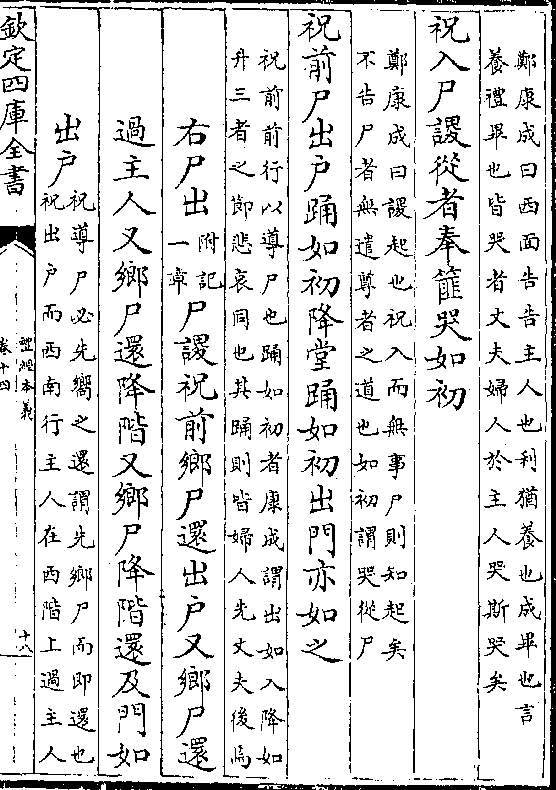 鄭康成曰西面告告主人也利猶養也成畢也言
養禮畢也皆哭者丈夫婦人於主人哭斯哭矣
祝入尸謖從者奉篚哭如初
鄭康成曰謖起也祝入而無事尸則知起矣
不告尸者無遣尊者之道也如初謂哭從尸
祝前尸出户踊如初降堂踊如初出門亦如之
祝前前行以導尸也踊如初者康成謂出如入降如
升三者之節悲哀同也其踊則皆婦人先丈夫後焉
右尸出
附記
一章
尸謖祝前鄉尸還出户又鄉尸還
過主人又鄉尸還降階又鄉尸降階還及門如
出户
祝導尸必先嚮之還謂先鄉尸而即還也
祝出户而西南行主人在西階上過主人
欽定四庫全書
禮經本義
卷十四
十八